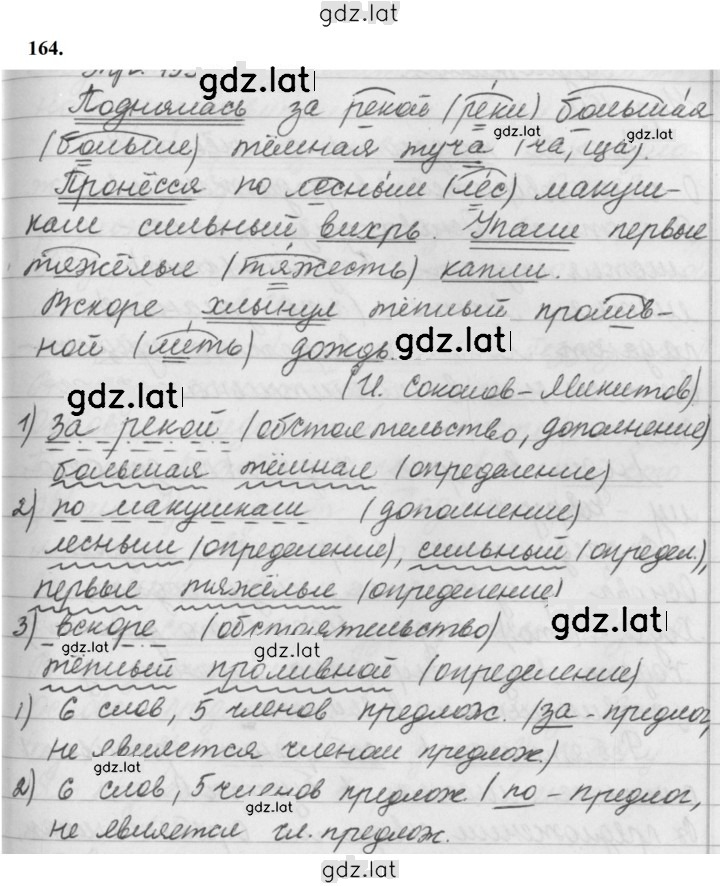 gdz.lat
164.
gdz.lat
Поднялась за рекой (ре́ки) больша́я
gdz.lat gdz.lat
(больше) тёмная туча (ча, ща).
Пронёсся по лесны́м (лес) макуш-
кам сильный вихрь. Упали первые
тяжёлые (тя́жесть) капли.
Вскоре хлынул тёплый пролив-
ной (лить) дождь.
gdz.lat
(И. Соколов-Микитов)
gdz.lat
1) за рекой (обстоятельство, дополнение)
большая тёмная (определение)
2) по макушкам (дополнение)
лесным (определение), сильный (определ.),
первые тяжёлые (определение)
3) вскоре (обстоятельство)
gdz.lat
gdz.lat
тёплый проливной (определение)
1) 6 слов, 5 членов предлож. (за - предлог,
не является членом предлож.)
gdz.lat
2) 6 слов, 5 членов предлож. (по - предлог,
gdz.lat
не является чл. предлож.
gdz.lat